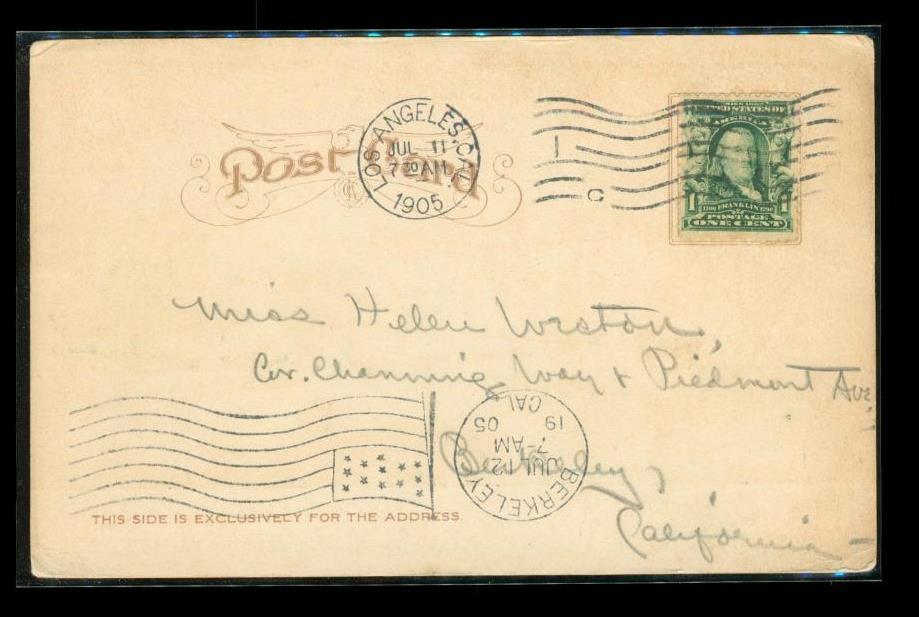 Post Card
LOS ANGELES, CAL.
JUL 11
7 30 AM
1905
C
UNITED STATES OF
AMERICA
1706 FRANKLIN 1790
POSTAGE
1 ONE CENT 1
Miss Helen Weston,
Cor. Channing Way & Piedmont Ave,
Berkeley,
California
BERKELEY
CAL
JUL 12
7- AM
19 05
THIS SIDE IS EXCLUSIVELY FOR THE ADDRESS.